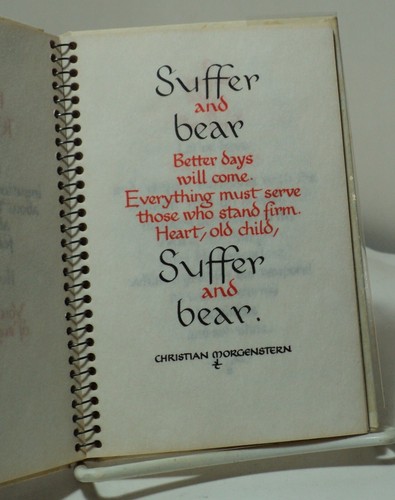 Suffer
and
bear
Better days
will come.
Everything must serve
those who stand firm.
Heart, old child,
Suffer
and
bear.
CHRISTIAN MORGENSTERN